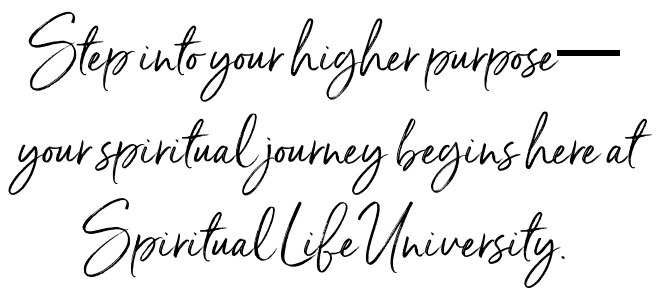 Step into your higher purpose—
your spiritual journey begins here at
Spiritual Life University.